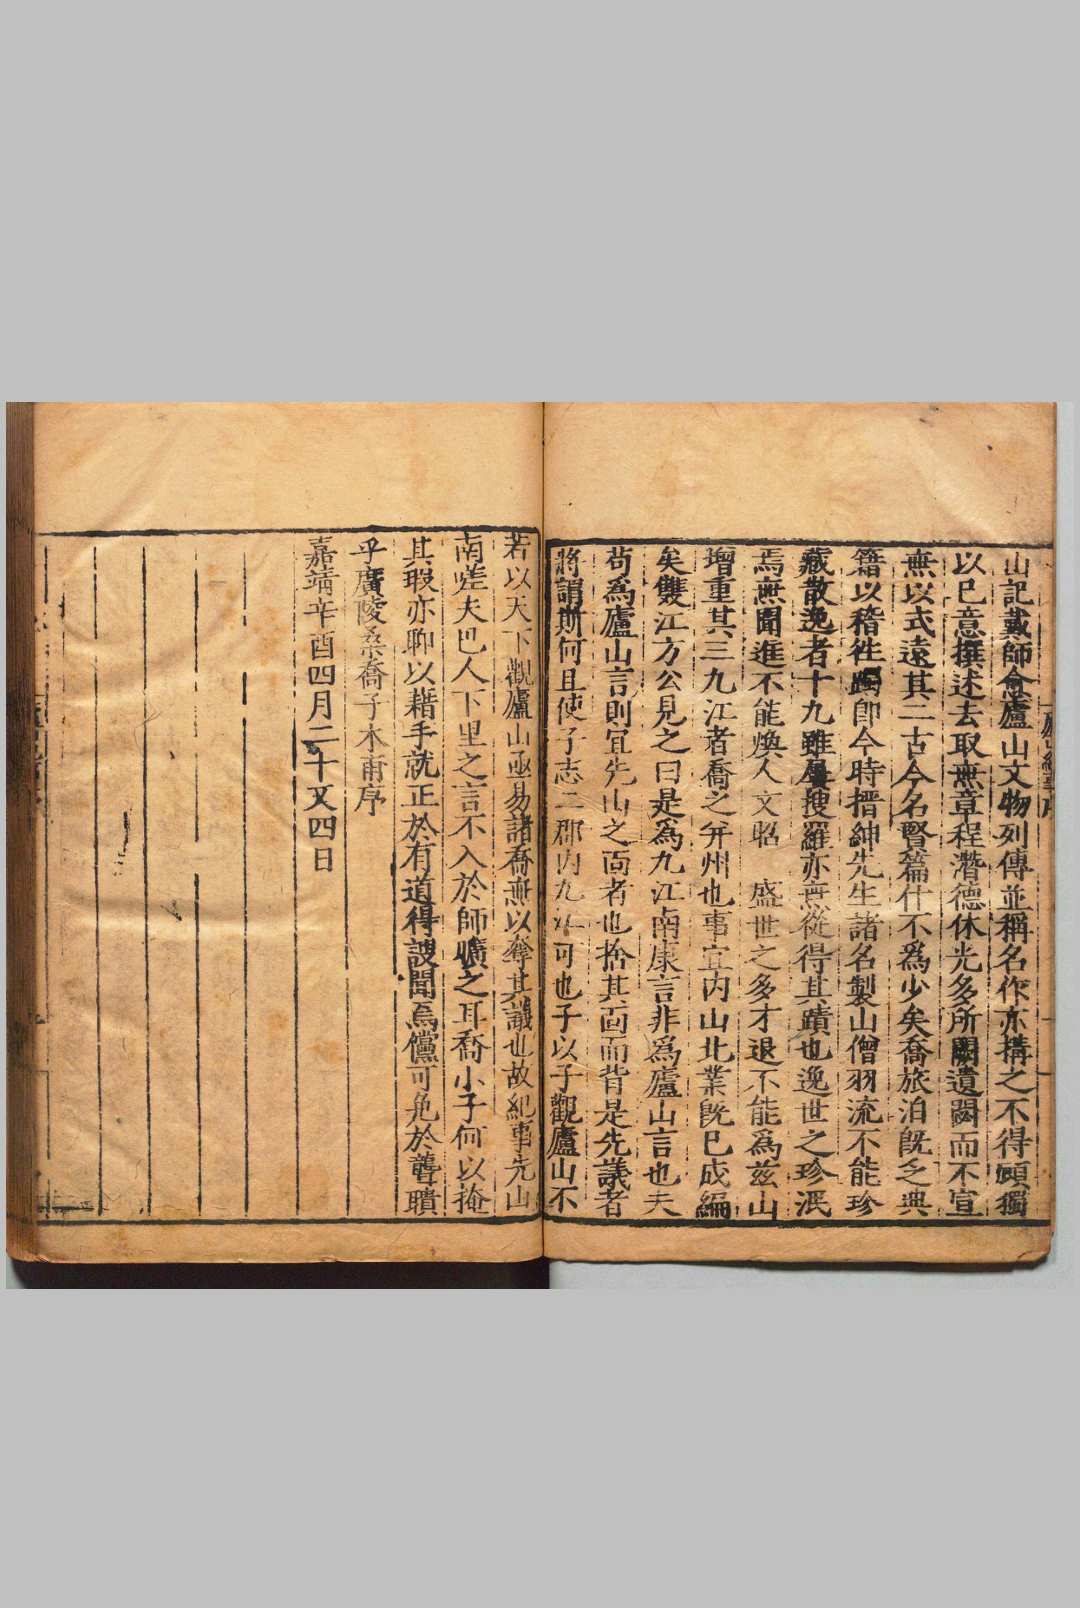 山記戴師愈廬山文物列傳並稱名作亦搆之不得顧獨
以已意撰述去取無章程潛德休光多所闕遺閟而不宣
無以式遠其二古今名賢篇什不爲少矣喬旅泊旣乏典
籍以稽徃躅卽今時搢紳先生諸名製山僧羽流不能珍
藏散逸者十九雖屢搜羅亦無從得其蹟也逸世之珍泯
焉無聞進不能煥人文昭 盛世之多才退不能爲兹山
增重其三九江者喬之并州也事宜内山北業旣已成編
矣雙江方公見之曰是爲九江南康言非爲廬山言也夫
苟爲廬山言則宜先山之面者也捨其面而背是先議者
將謂斯何且使子志二郡内九江可也子以子觀廬山不
若以天下觀廬山亟易諸喬無以奪其議也故紀事先山
南嗟夫巴人下里之言不入於師曠之耳喬小子何以掩
其瑕亦聊以藉手就正於有道得謏聞焉儻可免於聾聵
乎廣陵桑喬子木甫序
嘉靖辛酉四月二十又四日